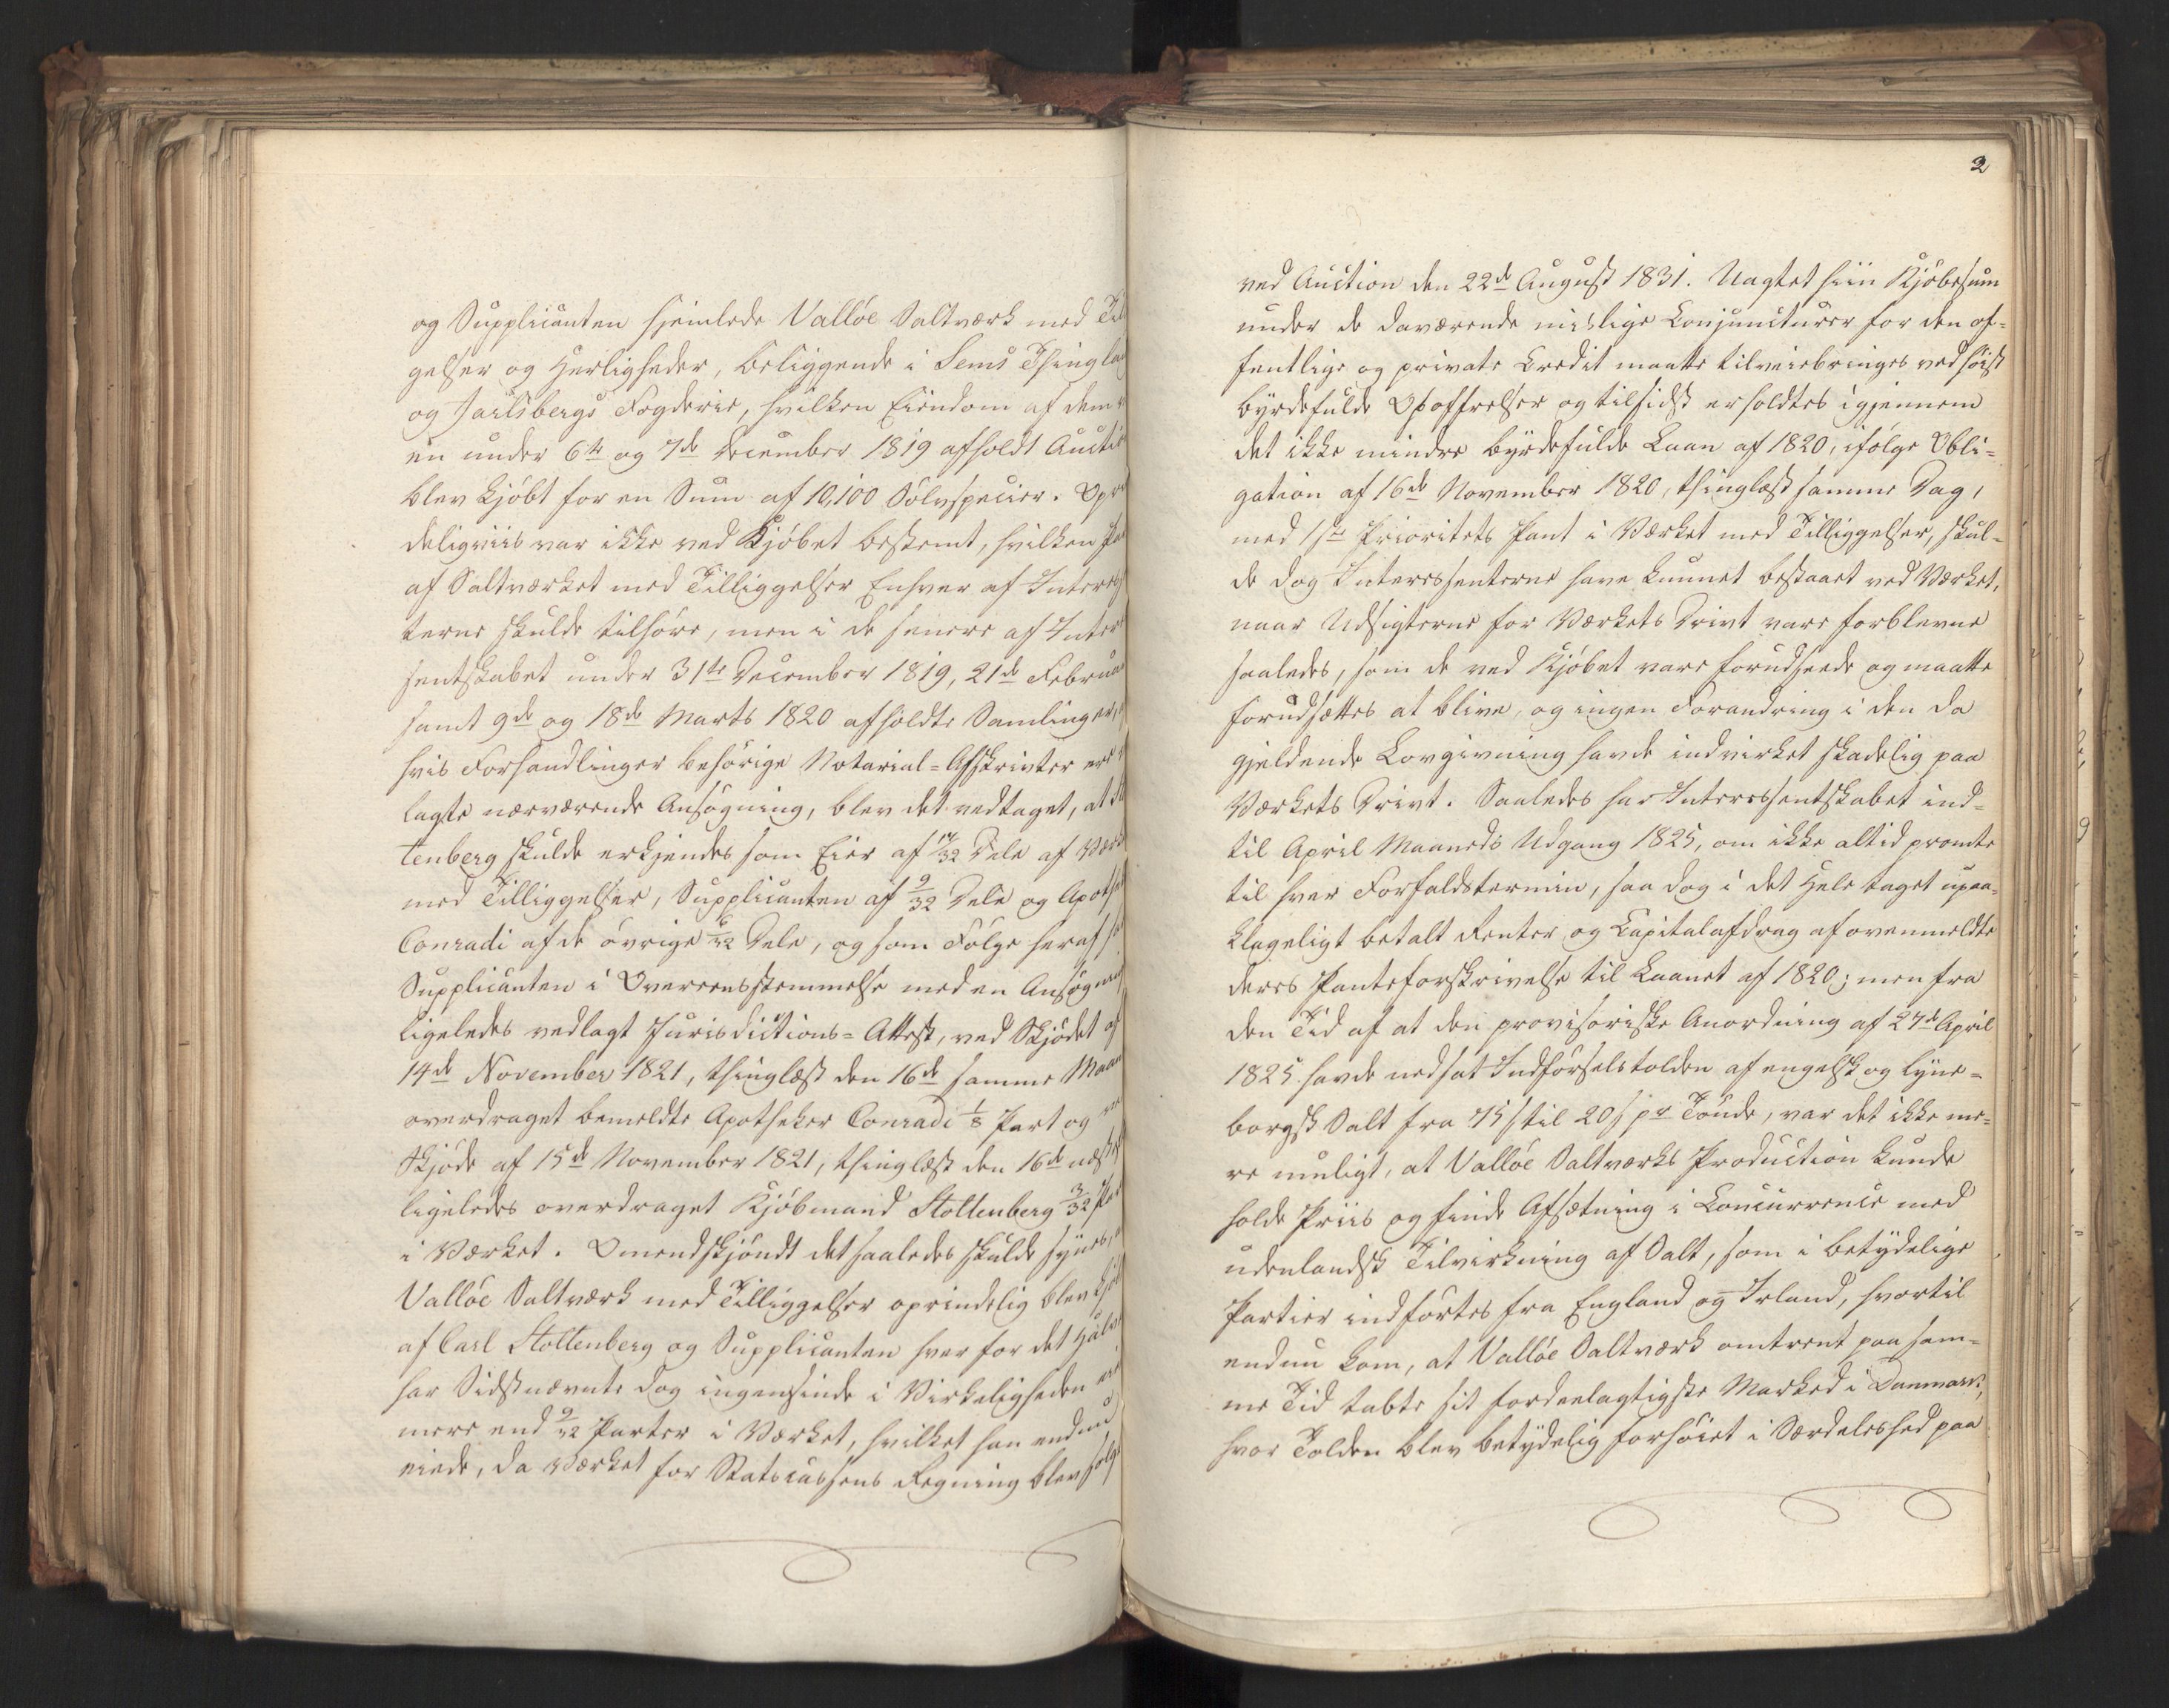 og Supplicanten hjemlede Valløe Saltværk med Til
gelser og Herligheder, beliggende i Sems Thinglag
og Jarlsbergs Fogderie, hvilken Eiendom af dem
en under 6te og 7de December 1819 afholdt Auctio
blev kjøbt for en Sum af 10,100 Sølvspecier. Opri
deligviis var ikke ved Kjøbet bestemt, hvilken Par
af Saltværket med Tilliggelser Enhver af Interess
terne skulde tilhøre, men i de senere af Interes
sentskabet under 31te December 1819, 21de Februar
samt 9de og 18de Marts 1820 afholdte Samlinger,
hvis Forhandlinger behørige Notarial-Afskrivter ere
lagte nærværende Ansøgning, blev det vedtaget, at St
tenberg skulde erkjendes som Eier af 17/32 Dele af Værk
med Tilliggelser, Supplicanten af 9/32 Dele og Apothe
Conradi af de øvrige 6/32 Dele, og som Følge heraf ha
Supplicanten i Overeensstemmelse med en Ansøgnin
ligeledes vedlagt Jurisdictions-Attest, ved Skjødet af
14de November 1821, thinglæst den 16de samme Maan
overdraget bemeldte Apotheker Conradi 1/8 Part og ve
Skjøde af 15de November 1821, thinglæst den 16de næst
ligeledes overdraget Kjøbmand Stoltenberg 3/32 Par
i Værket. Omendskjøndt det saaledes skulde synes,
Valløe Saltværk med Tilliggelser oprindelig blev kjøb
af Carl Stoltenberg og Supplicanten hver for det Halve
har Sidstnævnte dog ingensinde i Virkeligheden
mere end 9/32 Parter i Værket, hvilket han endnu
eiede, da Værket for Statscassens Regning blev solgt
2
ved Auction den 22de August 1831. Uagtet hiin Kjøbesum
under de daværende mislige Conjuncturer for den of-
fentlige og private Credit maatte tilveiebringes ved høist
byrdefulde Opoffrelser og tilsidst erholdtes igjennem
det ikke mindre byrdefulde Laan af 1820, ifølge Obli-
gation af 16de November 1820, thinglæst samme Dag,
med 1ste Prioritets Pant i Værket med Tilliggelser, skul-
de dog Interessenterne have kunnet bestaaet ved Værket,
naar Udsigterne for Værkets Drivt vare forblevne
saaledes, som de ved Kjøbet vare forudseede og maatte
forudsættes at blive, og ingen Forandring i den da
gjeldende Lovgivning havde indvirket skadelig paa
Værkets Drivt. Saaledes har Interessentskabet ind-
til April Maaneds Udgang 1825, om ikke altid promte
til hver Forfaldstermin, saa dog i det Hele taget upaa-
klageligt betalt Renter og Capitalafdrag af ovenmeldte
deres Panteforskrivelse til Laanet af 1820; men fra
den Tid af at den provisoriske Anordning af 27de April
1825 havde nedsat Indførselstolden af engelsk og lyne-
borgsk Salt fra 45 s til 20 s pr Tønde, var det ikke me-
re muligt, at Valløe Saltværks Production kunde
holde Priis og finde Afsætning i Concurrence med
udenlandsk Tilvirkning af Salt, som i betydelige
Partier indførtes fra England og Irland, hvortil
endnu kom, at Valløe Saltværk omtrent paa sam-
me Tid tabte sit fordeelagtigste Marked i Danmark,
hvor Tolden blev betydelig forhøiet i Særdeleshed paa